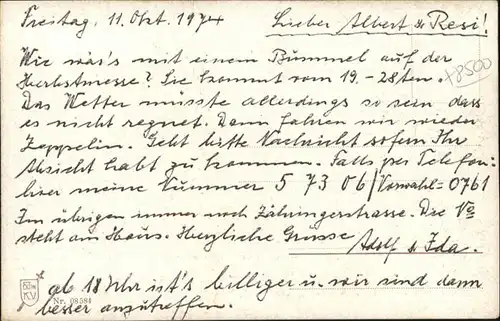 Freitag, 11. Okt. 1974 Lieber Albert u. Resi!
Wie wär's mit einem Bummel auf der
Herbstmesse? Sie kommt vom 19.-28ten.
x8500
Das Wetter müsste allerdings so sein, dass
es nicht regnet. Dann fahren wir wieder
Zeppelin. Gebt bitte Nachricht sofern Ihr
Absicht habt zu kommen. Falls per Telefon
hier meine Nummer 5 73 06/Vorwahl=0761
Im übrigen immer noch Zähringerstrasse. Die No
steht am Haus. Herzliche Grüsse
Adolf u Ida.
ab 18 Uhr ist's billiger u. wir sind dann
besser anzutreffen.
K.V.
Nr. 08584